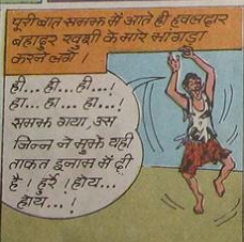 पूरी बात समझ में आते ही हवलदार
बहादुर खुशी के मारे भांगड़ा
करने लगे !
ही... ही... ही...!
हा... हा... हा...!
समझ गया, उस
जिन्न ने मुझे यही
ताकत इनाम में दी
है ! हुर्रे ! होय...
होय... !